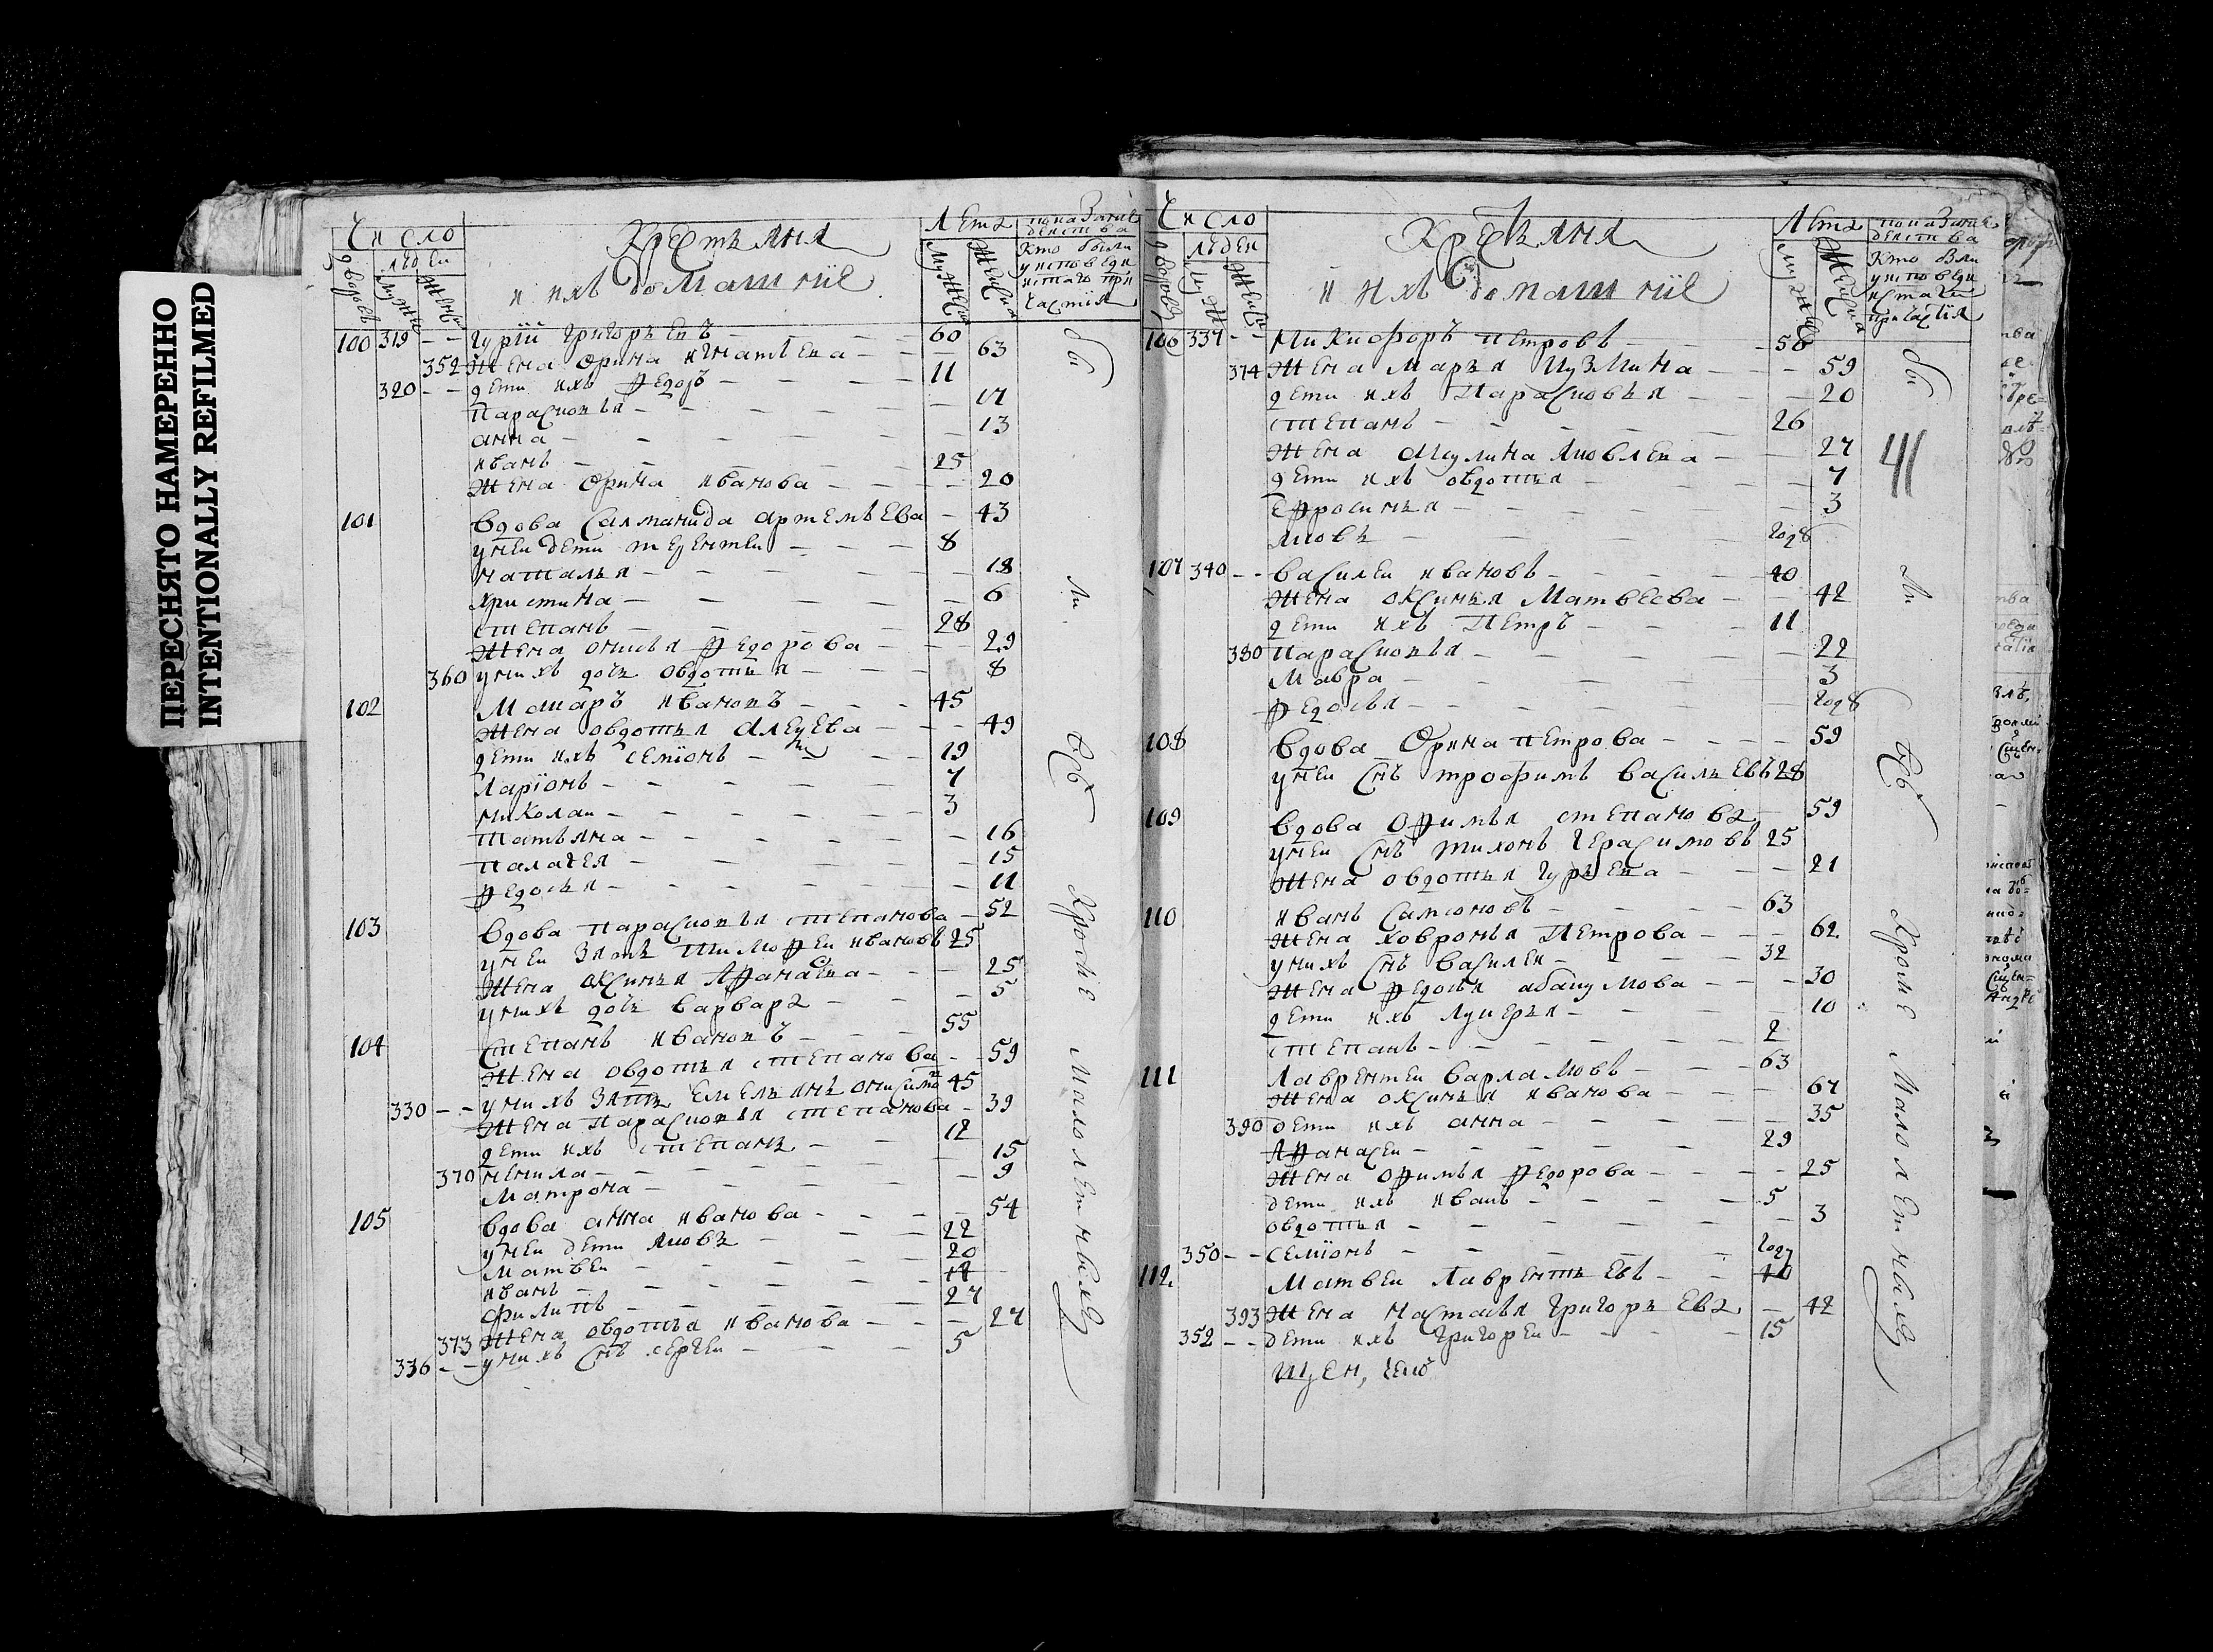 ПЕРЕСНЯТО НАМЕРЕННО
INTENTIONALLY REFILMED
Число
дворовъ
людей
муж
женск
Крестьяня
и ихъ домашнiе
Летъ
мужеска
женска
по показанiе
действа
Кто были
у исповеди
и стаго при
частiя
100 319 - - Гурiй Григорьевъ 60
352 Жена Орина Игнатьева 63
320 - - дети ихъ Федоръ 11
Парасковья 17
анна 13
иванъ 25
Жена Орина иванова 20
101 Вдова Салманида артемьева 43
у неи дети терентеи 8
наталья 18
христина 6
степанъ 28
Жена онисья Федорова 29
360 у нихъ дочь овдотья 8
102 Макаръ ивановъ 45
Жена овдотья 49
дети ихъ семiонъ 19
Ларiонъ 7
николаи 3
татьяна 16
палагея 15
Федосья 11
103 Вдова парасковья степанова 52
у неи зять Тимофеи ивановъ 25
Жена оксинья Афанасева 25
у нихъ дочь варвара 5
104 Степанъ ивановъ 55
Жена овдотья степанова 59
330 - - у нихъ зять Емельянъ онисимо 45
Жена парасковья степанова 39
дети ихъ степанъ 12
370 ненила 15
Матрона 9
105 Вдова анна иванова 54
у неи дети яковъ 22
Матвеи 20
иванъ 17
филипъ 27
373 Жена овдотья иванова 27
336 - - у нихъ снъ сергеи 5
были
у
Кроме
Малолетныхъ
Число
дворовъ
людеи
муж
женск
Крестьяня
и ихъ домашнiе
Летъ
мужеска
женска
по показанiе
действа
Кто были
у исповеди
и стаго
причастiя
106 337 - - Никифоръ петровъ 58
374 Жена Марья Кузмина 59
дети ихъ Парасковья 20
степанъ 26
Жена Акулина Яковлева 27
дети ихъ овдотья 7
Ефросинья 3
яковъ году
107 340 - - василеи ивановъ 40
Жена оксинья Матвеева 42
дети ихъ Петръ 11
380 парасковья 22
Мавра 3
Федосья году
108 Вдова Орина петрова 59
у неи снъ трофимъ васильевъ 28
109 Вдова Офимья степанова 59
у неи снъ тихонъ герасимовъ 25
Жена овдотья Гурьева 21
110 иванъ Самсоновъ 63
Жена ховронья Петрова 62
у нихъ снъ василеи 32
Жена Федосья абакумова 30
дети ихъ Лукерья 10
степанъ 2
111 Лаврентеи варламовъ 63
Жена оксинья иванова 67
390 дети ихъ анна 35
Афанасеи 29
Жена Офимья Федорова 25
дети ихъ иванъ 5
овдотья 3
350 - - семiонъ году
112 Матвеи Лаврентьевъ 40
393 Жена настасья Григорьева 42
352 - - дети ихъ Григореи 15
были
Кроме
Малолетныхъ